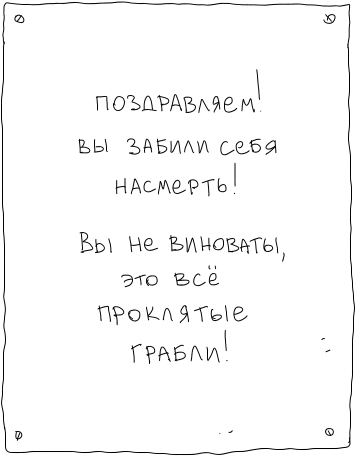 Поздравляем!
Вы забили себя
насмерть!
Вы не виноваты,
это всё
проклятые
грабли!